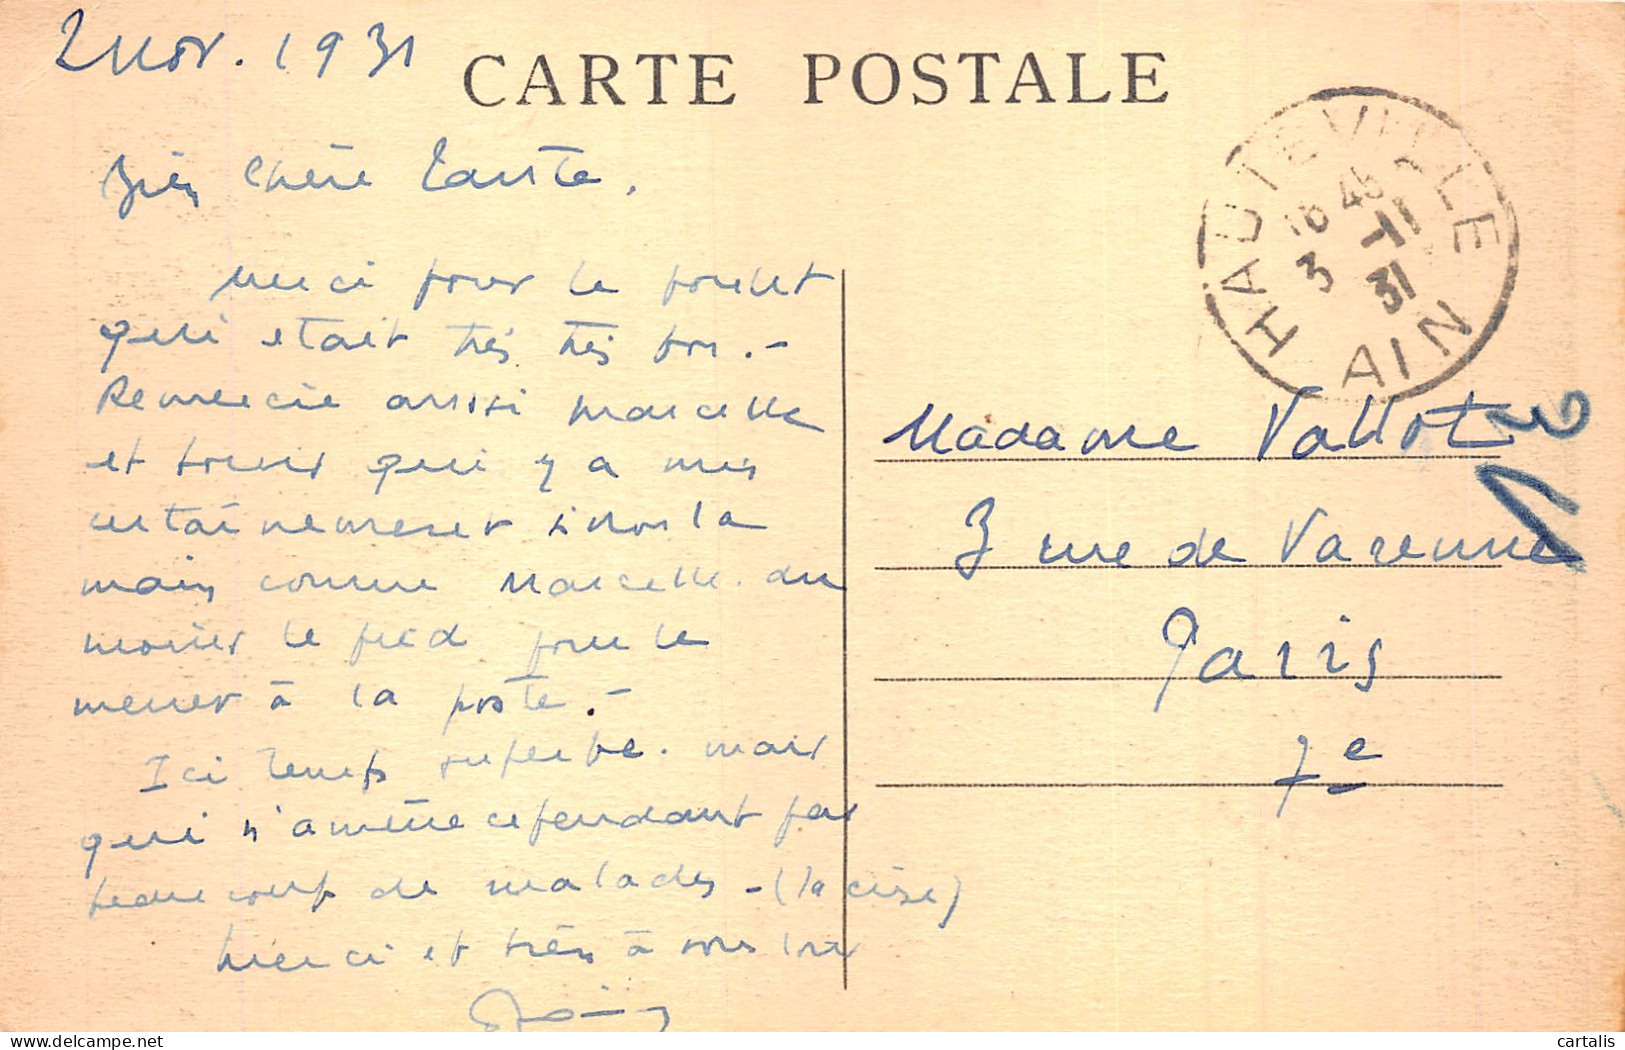 2 Nov. 1931
CARTE POSTALE
HAUTEVILLE
18 45
3 - 11
31
AIN
Bien Chère Tante,
Merci pour le poulet
qui etait très très bon. -
Remercie aussi Marcelle
et Louis qui y a mis
certainement sinon la
main comme Marcelle. du
moins le pied pour le
mener à la poste. -
Ici temps superbe. mais
qui n'amène cependant pas
beaucoup de malades - (la crise)
Merci et bien à vous tous
Madame Vallot
3 rue de Varenne
Paris
7e
cartalis
delcampe.net